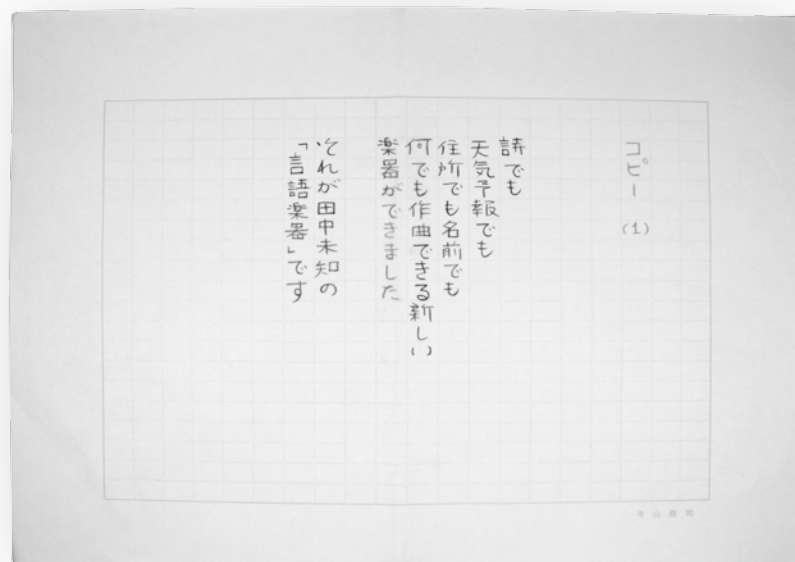 コピー (1)
詩でも
天気予報でも
住所でも名前でも
何でも作曲できる新しい
楽器ができました
それが田中未知の
「言語楽器」です